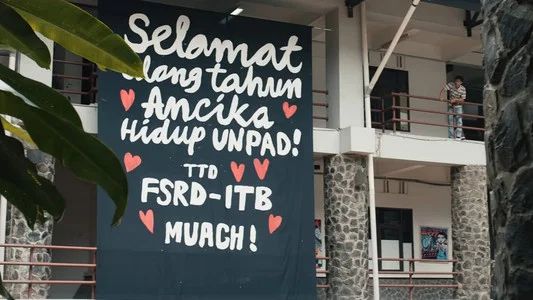 Selamat
ulang tahun
Ancika
Hidup UNPAD!
TTD
FSRD-ITB
MUACH!